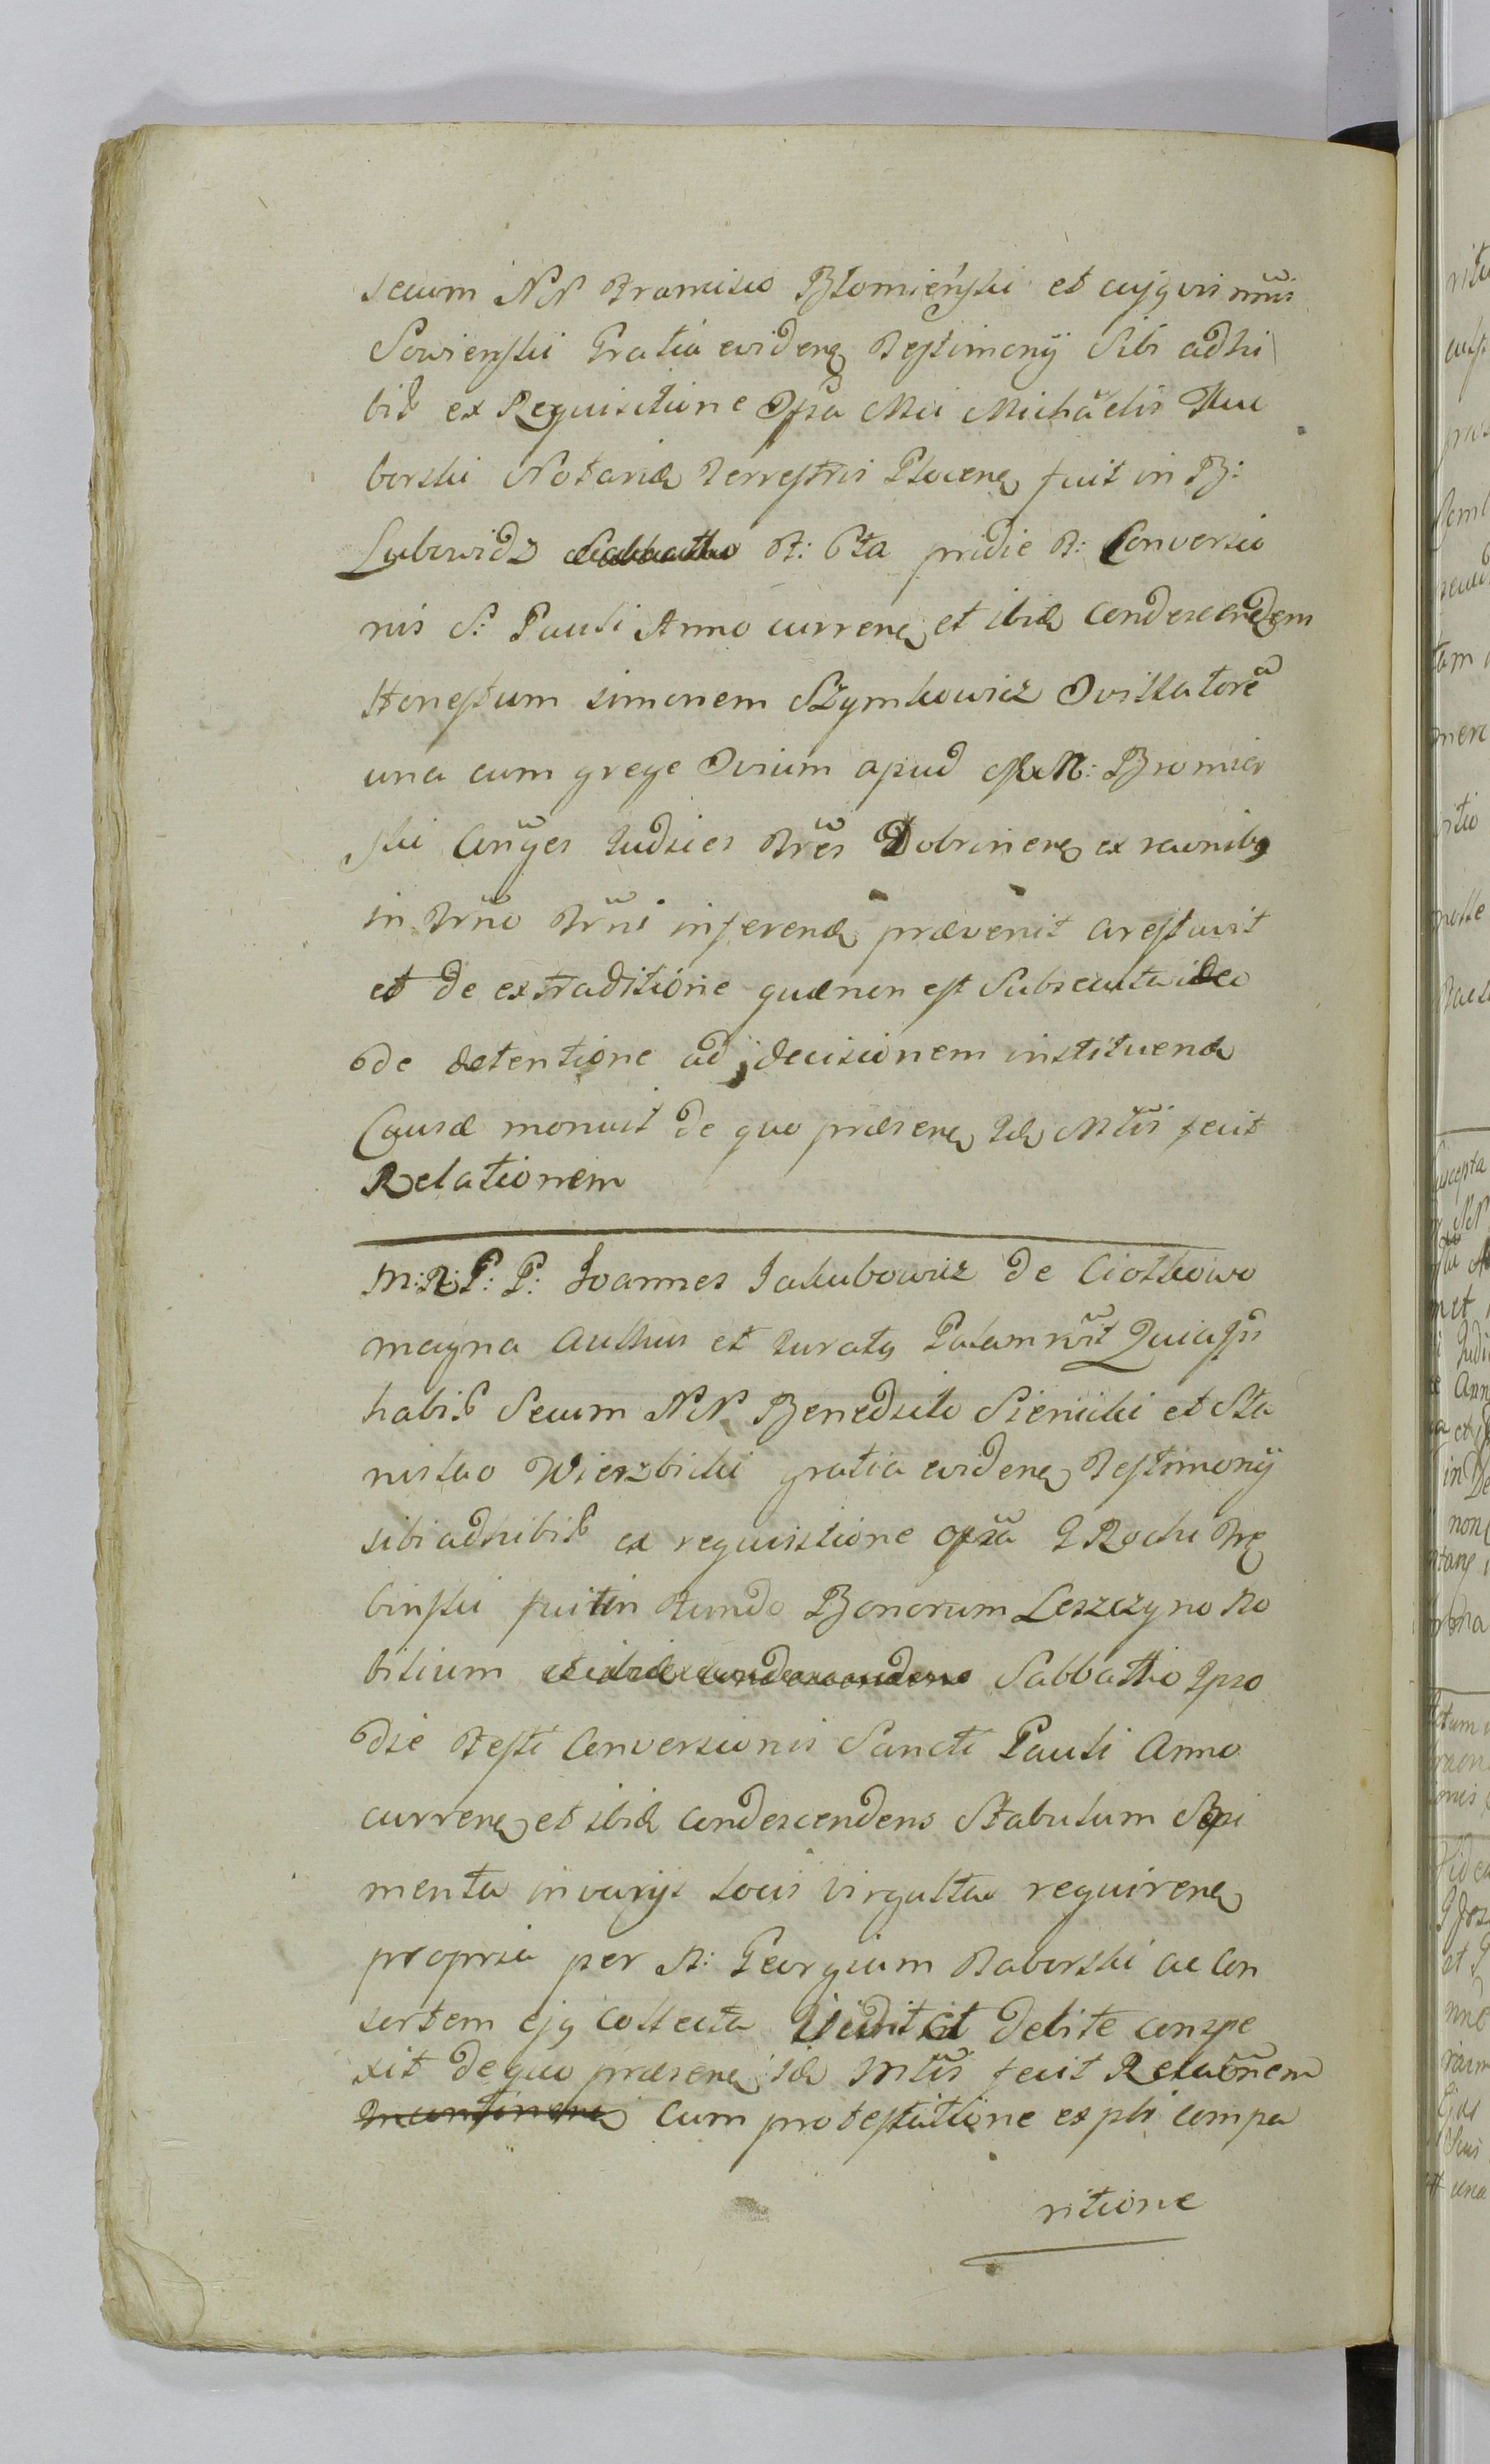 secum NN Francisco Błomieński et cujqvis nnis
Sowienski Gratia eviden Testimonij Sibi adhi
bit ex Requisitione Mei Michaelis
borski Notarii Terrestris Plocen fuit in B:
Lubowidz Sabbatho F: 6ta pridie F: Conversio
nis S: Pauli Anno curren et ibid condescendem
Honestum simonem Szymkowicz Ovillatore
una cum grege Ovium apud M: Bromier
ski Judices Dobrinen ex racnibq
in inferend prævenit arestavit
et de extraditione quæ non est Subsecuta ideo
de detentione ad decisionem instituend
Causæ monuit de quo præsens Id Mtis fecit
Relationem
M: R: P: P: Ioannes Jakubowicz de Ciołkowo
magna authus et Juratq Palam rvit Quia
habit Secum NN Benedicto Sienicki et Sta
nislao Wierzbicki gratia eviden Testimonij
sibi adhibit ex requisitione G Rochi
binski fuit in Fundo Bonorum Leszczyno No
bilium et ibid condescendens Sabbatho Ipso
die Festi Conversionis Sancti Pauli Anno
curren et ibid condescendens Stabulum Sepi
menta in varijs locis virgulta requiren
propria per N: Georgium Raborski ac Con
sortem ejq collecta Vidit et debite conspe
xit de quo præsens Id Mtis fecit Relaonem
cum protestatione ex pti compa
ritione